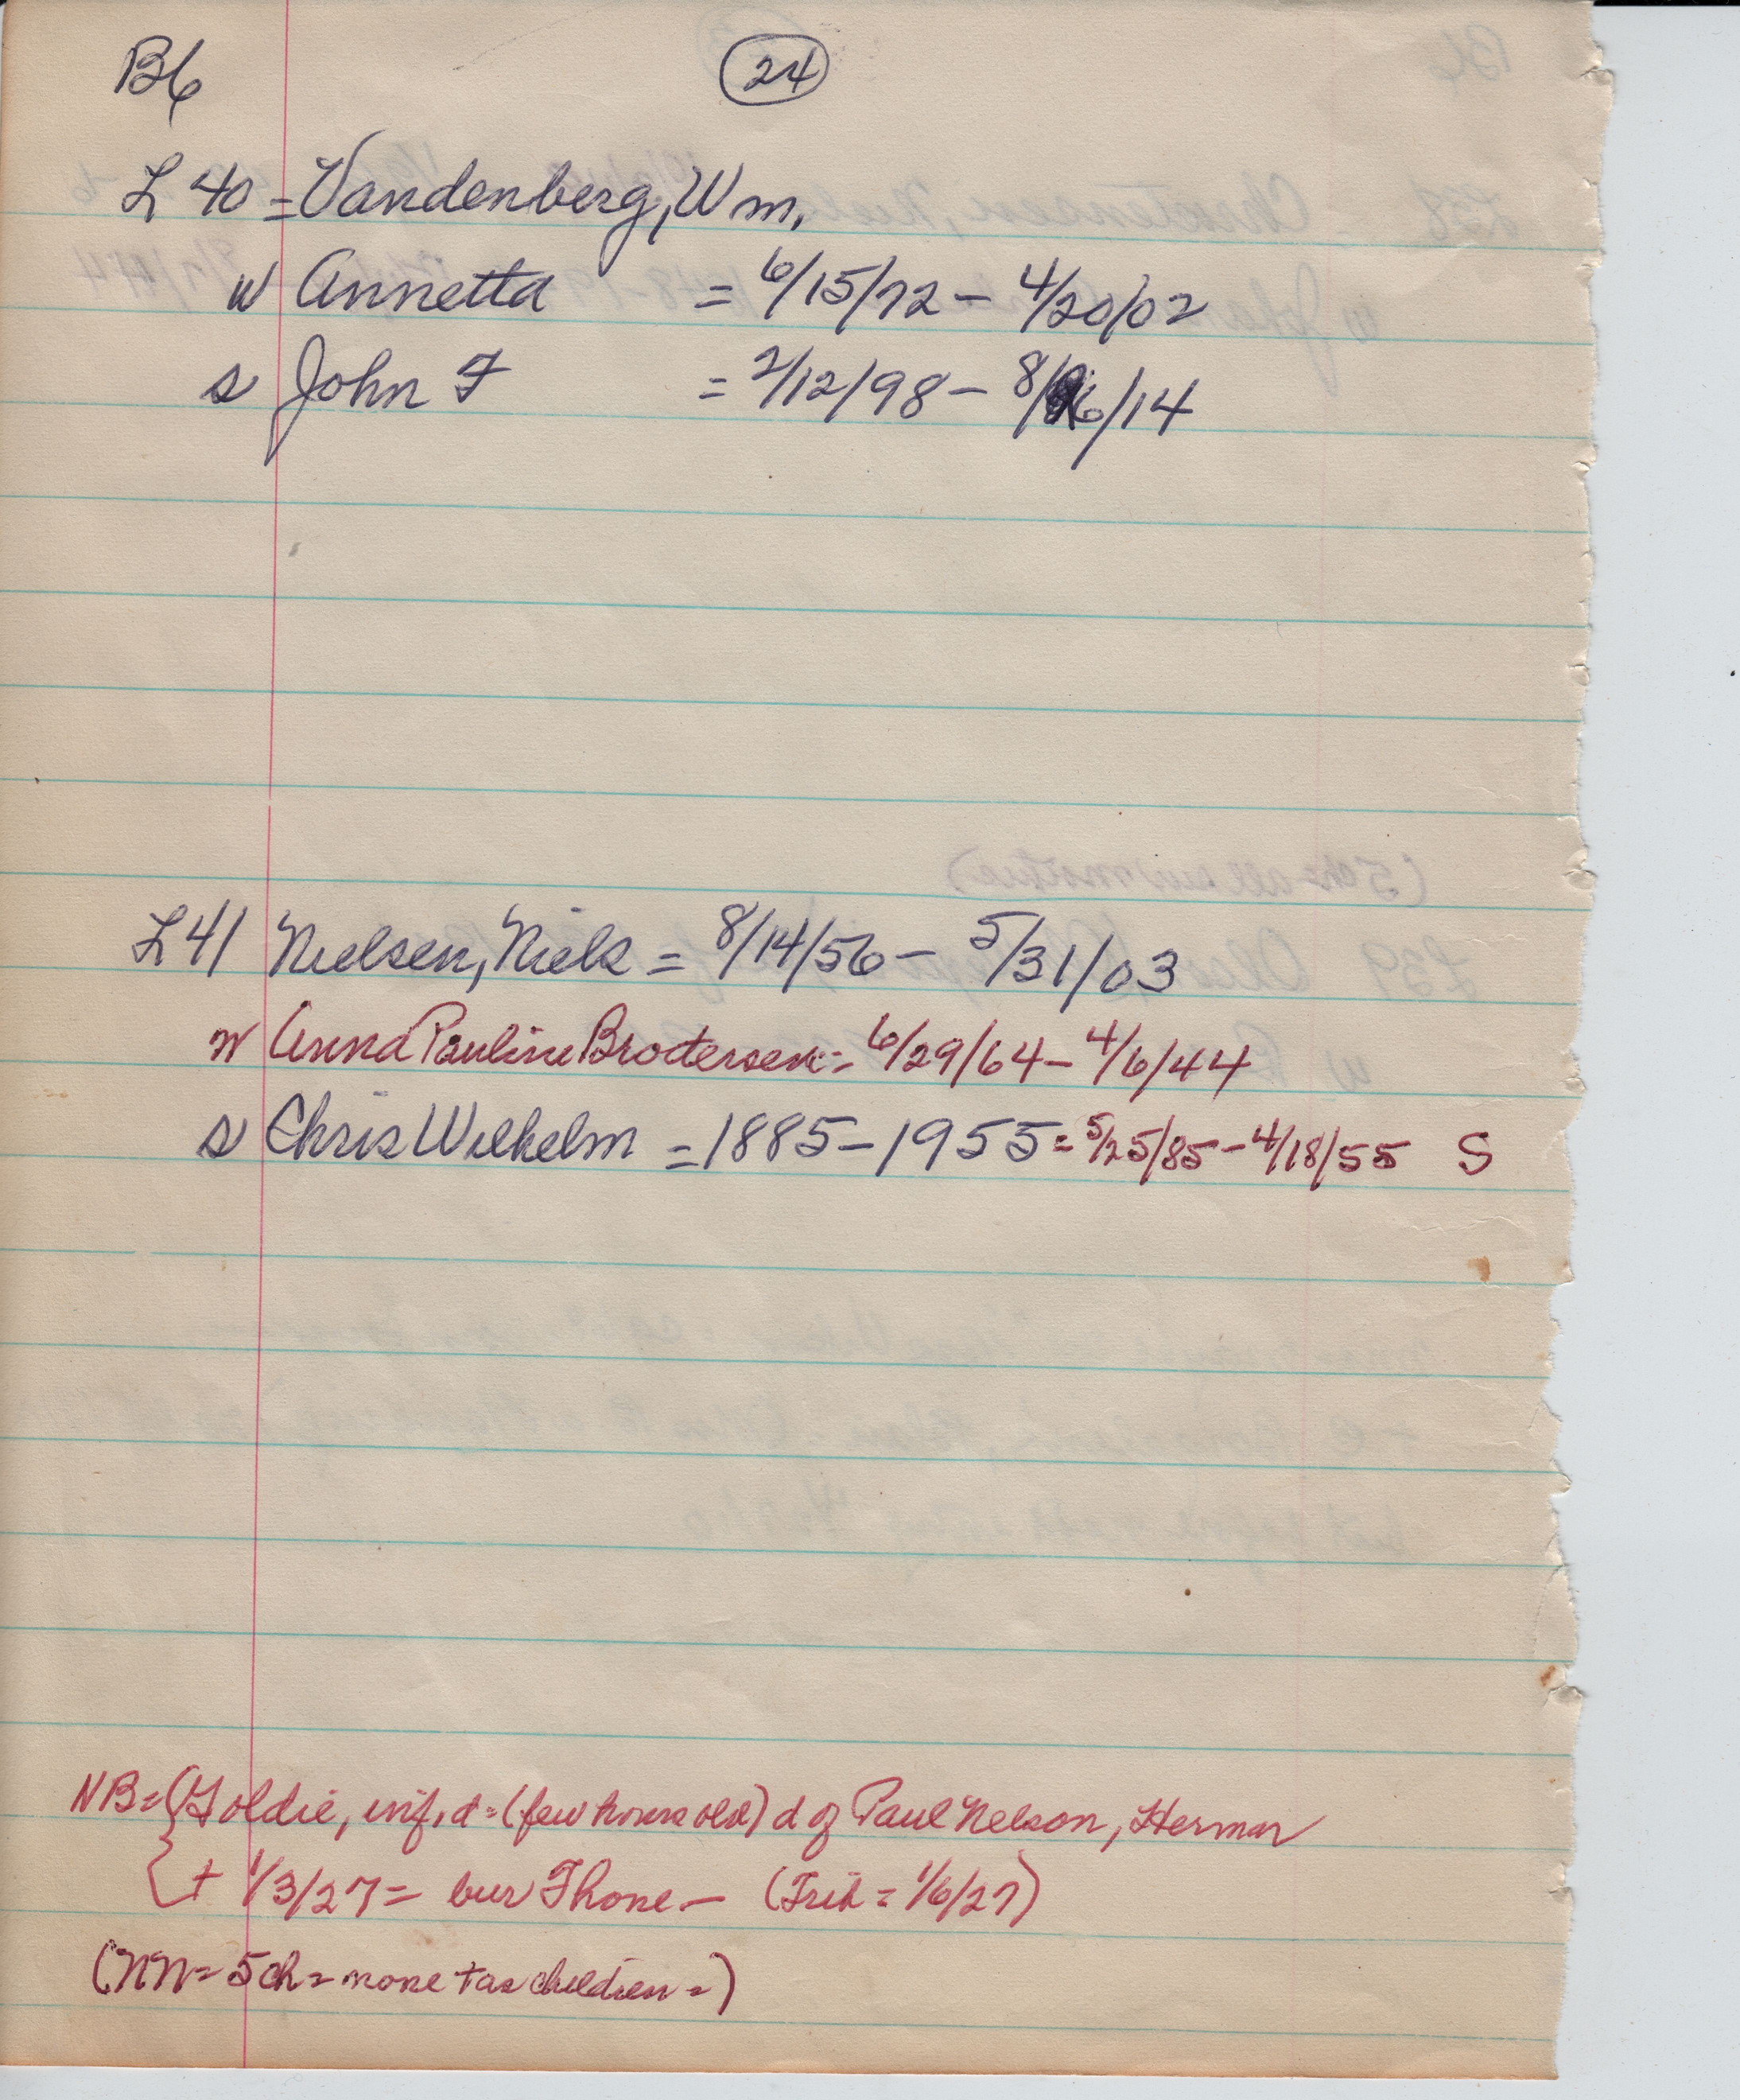 B6 24
L 40 = Vandenberg, Wm.
w Annetta = 6/15/72 - 4/20/02
s John F = 2/12/98 - 8/6/14
L 41 Nielsen, Niels = 8/14/56 - 5/31/03
w Anna Pauline Brodersen = 6/29/64 - 4/6/44
s Chris Wilhelm = 1885 - 1955 = 5/25/85 - 4/18/55 S
NB = { Goldie, inf. d = (few hours old) d of Paul Nelson, Herman
{ + 1/3/27 = bur Thone - (Trib = 1/6/27)
(NN = 5 ch = none + as children = )